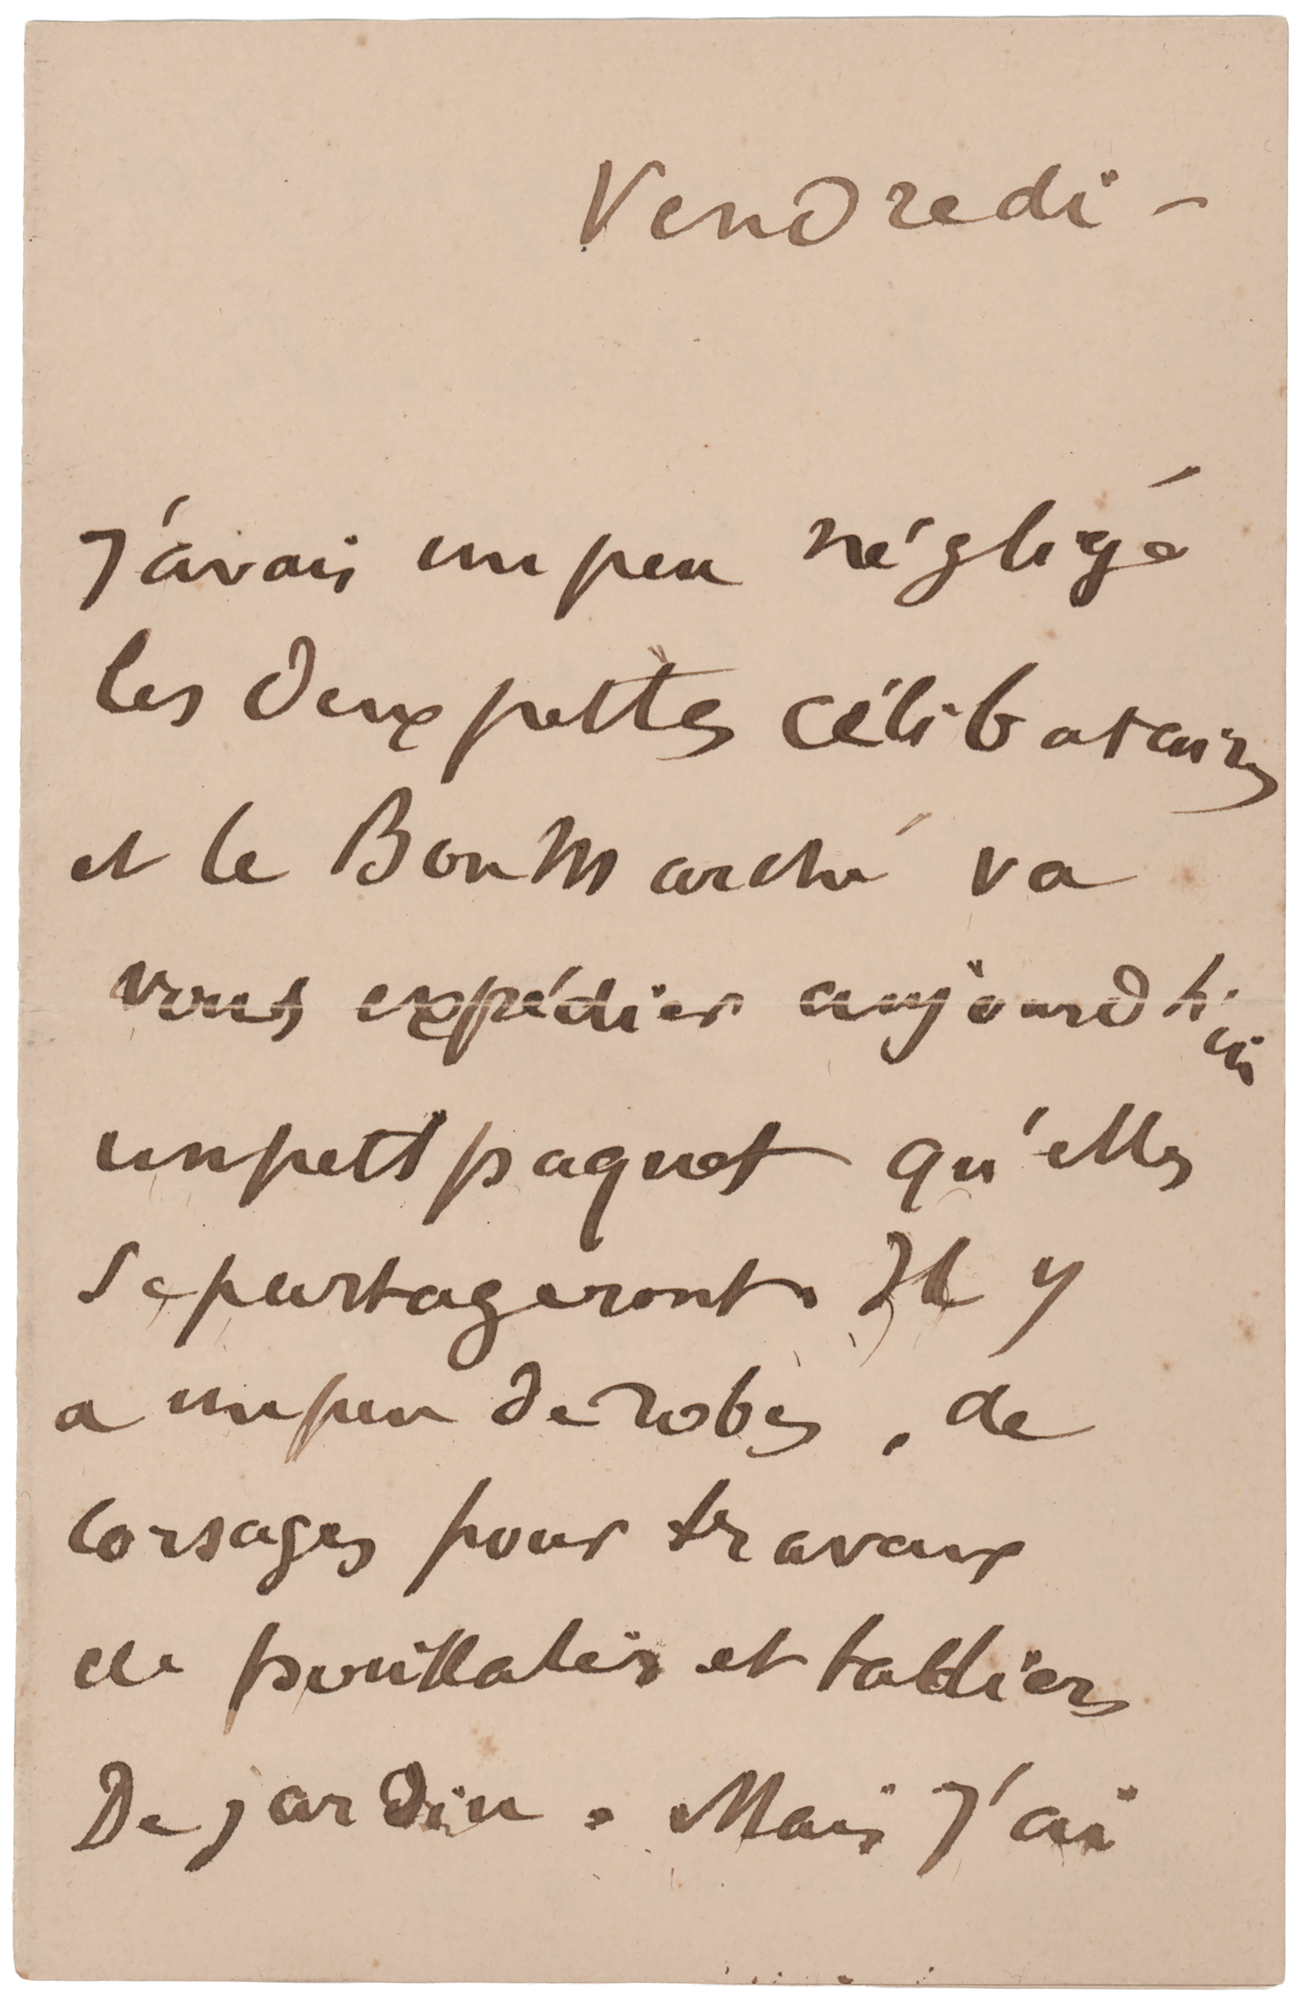 Vendredi -
J'avais un peu négligé
les deux petites célibataires
et le Bon Marché va
vous expédier aujourd'hui
un petit paquet qu'elles
se partageront. Il y
a un peu de robes, de
corsages pour travaux
de et tabliers
De jardin. Mais j'ai